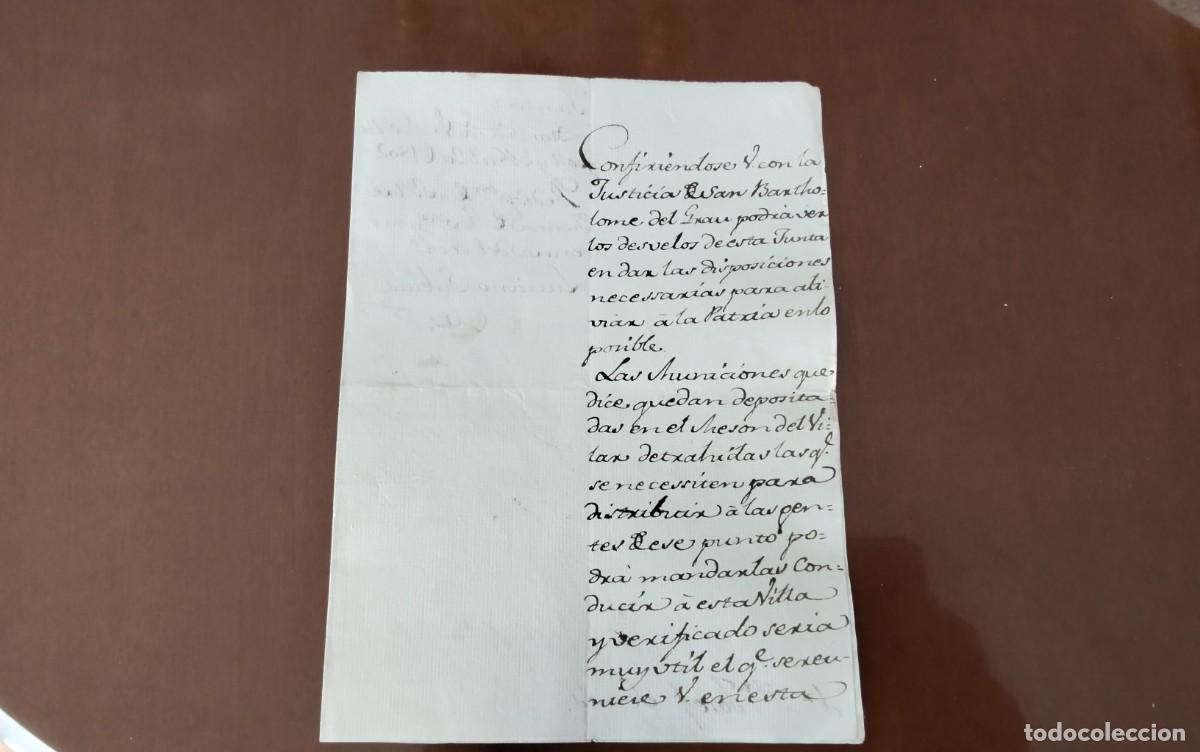 Confiriéndose V. con la
Justicia de San Bartho-
lome del Grau podrá ver
los desvelos de esta Junta
en dar las disposiciones
necessarias para ali-
viar à la Patria en lo
posible.
Las Municiones que
dice quedan deposita-
das en el Meson del Vi-
lar detrahidas las q.e
se necessiten para
distribuir à las gen-
tes de ese punto po-
drà mandarlas Con-
ducir à esta Villa
y verificado seria
muy útil el q.e se reu-
niése V. en esta
todocoleccion